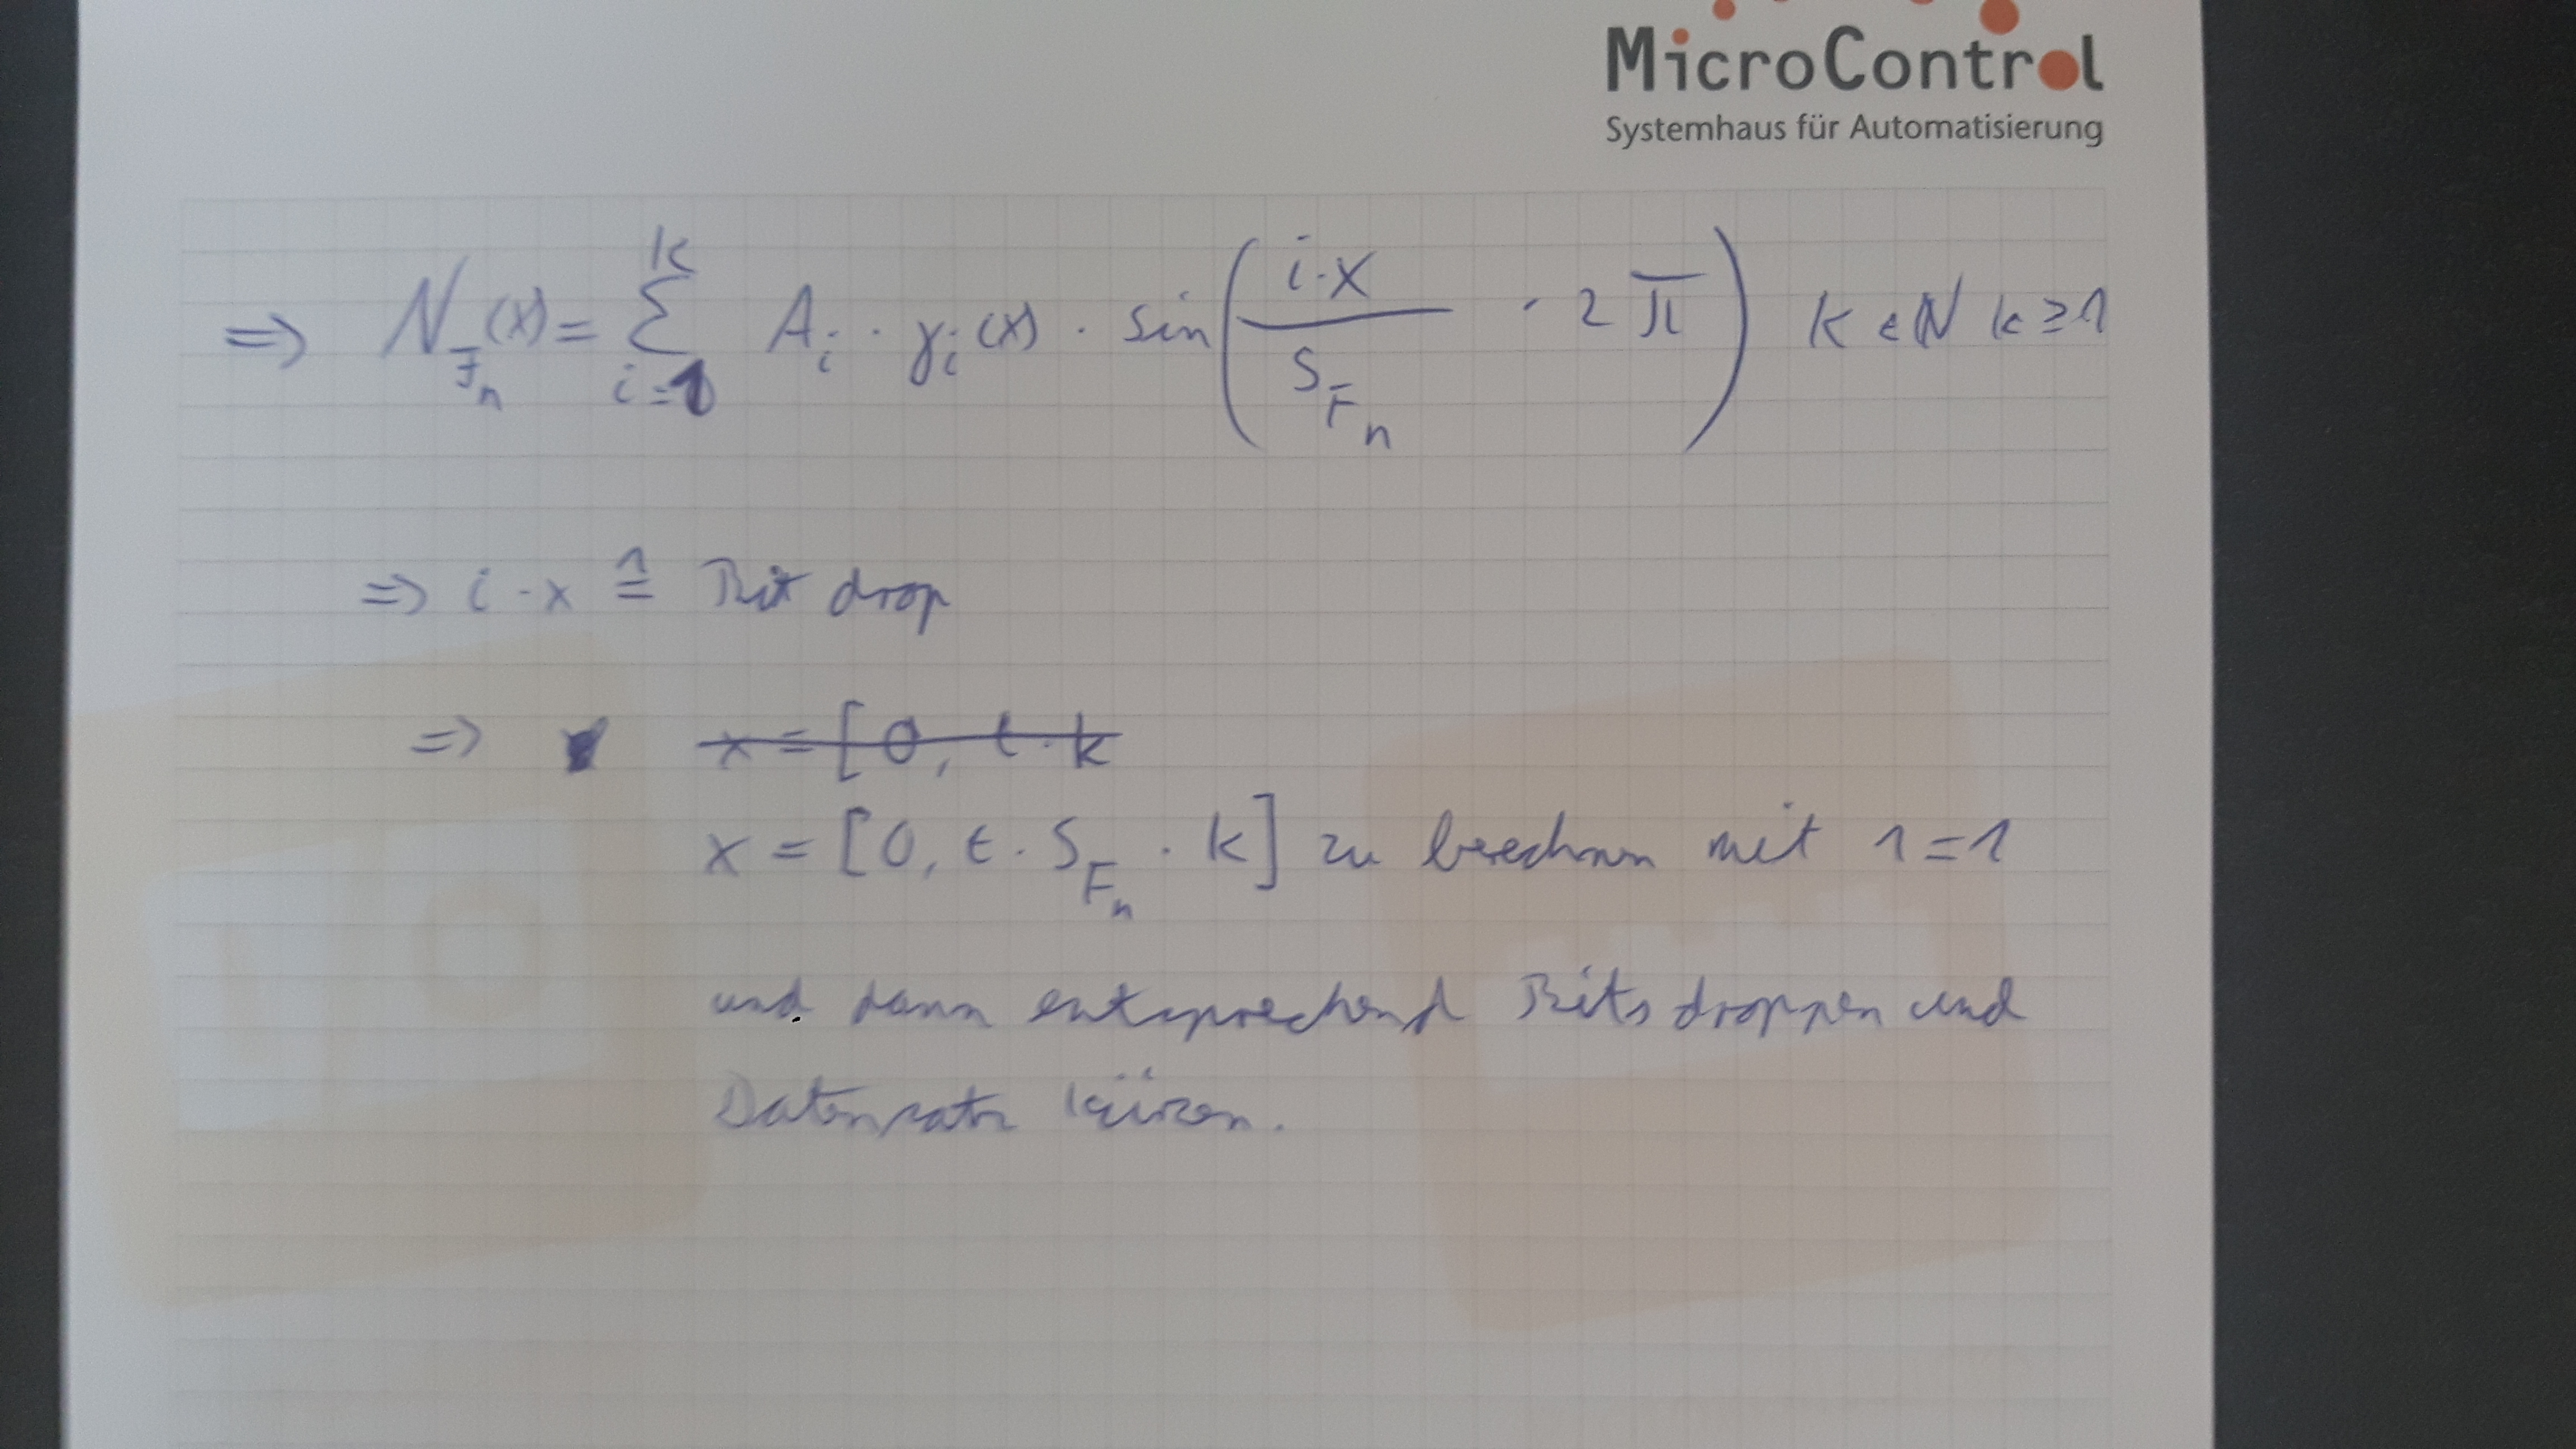 MicroControl
Systemhaus für Automatisierung
⇒ N_{F_n}(x) = Σ_{i=1}^{k} A_i · γ_i(x) · sin( (i·x / S_{F_n}) · 2π ) k ∈ ℕ k ≥ 1
⇒ i · x ≙ Bit drop
⇒ x = [0, t · k
x = [0, t · S_{F_n} · k] zu berechnen mit 1 = 1
und dann entsprechend Bits droppen und
Datenrate kürzen.